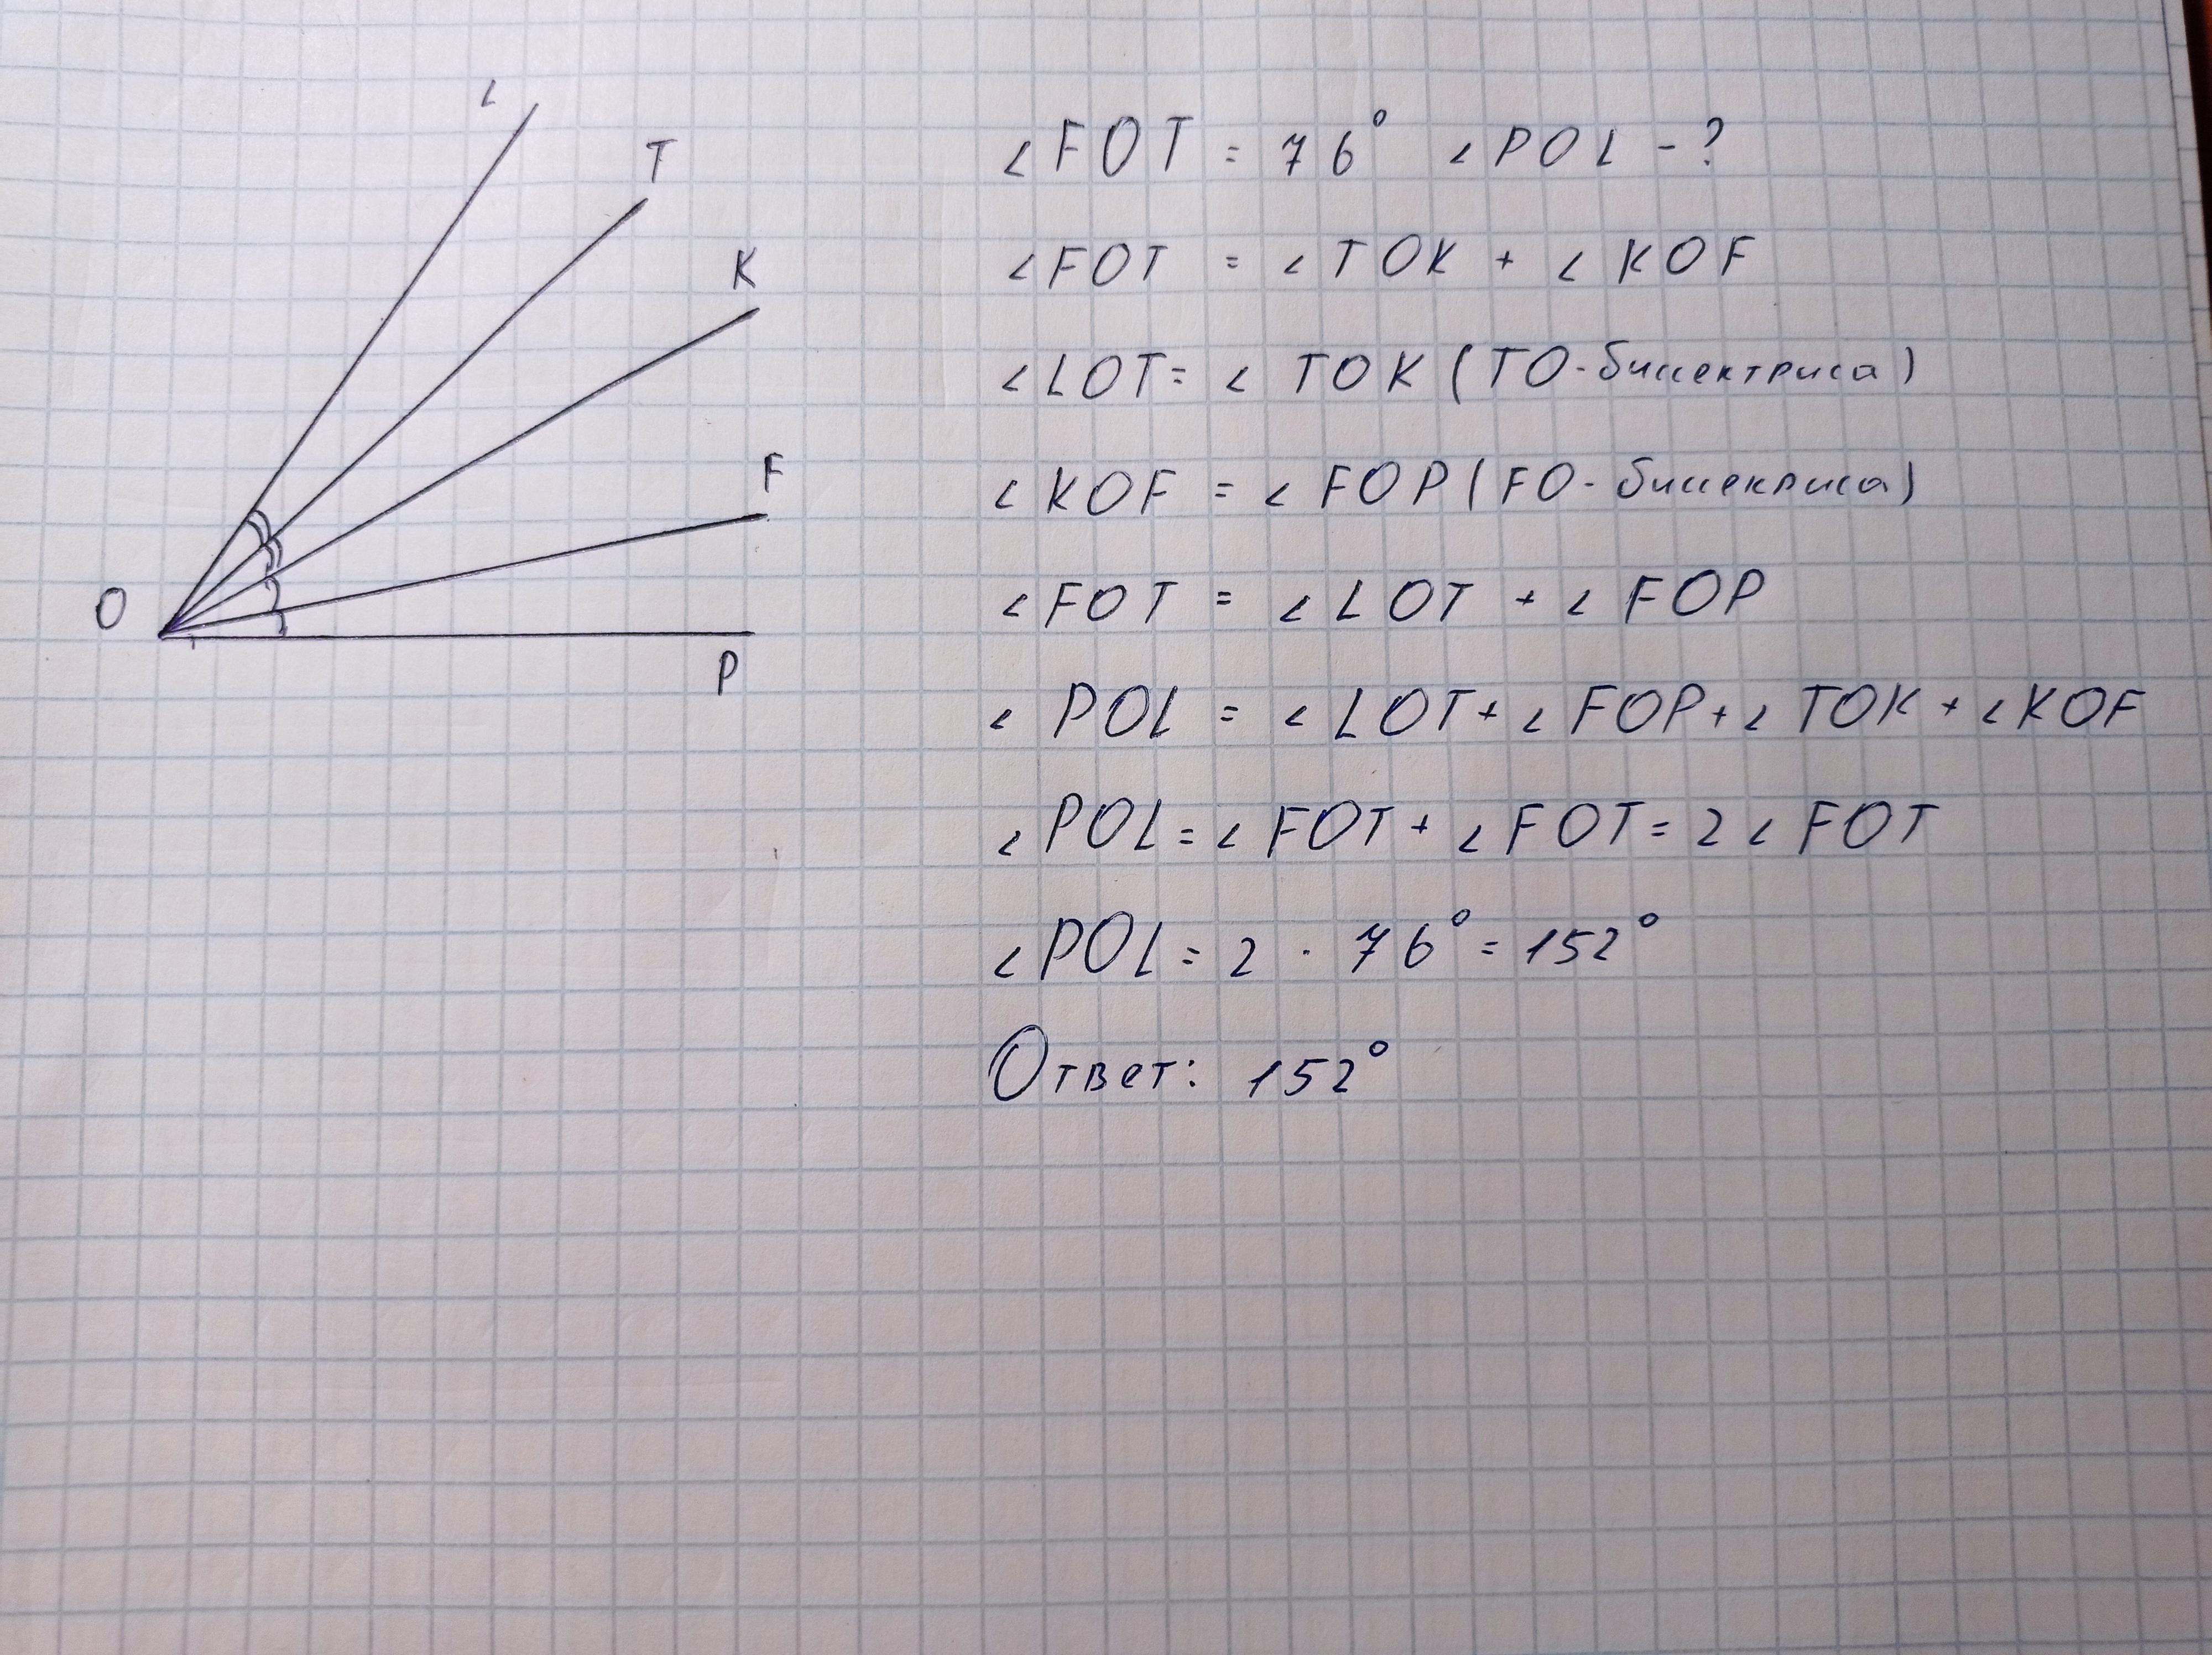 L
T
K
F
O
P
∠FOT = 76° ∠POL - ?
∠FOT = ∠TOK + ∠KOF
∠LOT = ∠TOK (TO - биссектриса)
∠KOF = ∠FOP (FO - биссектриса)
∠FOT = ∠LOT + ∠FOP
∠POL = ∠LOT + ∠FOP + ∠TOK + ∠KOF
∠POL = ∠FOT + ∠FOT = 2∠FOT
∠POL = 2 · 76° = 152°
Ответ: 152°